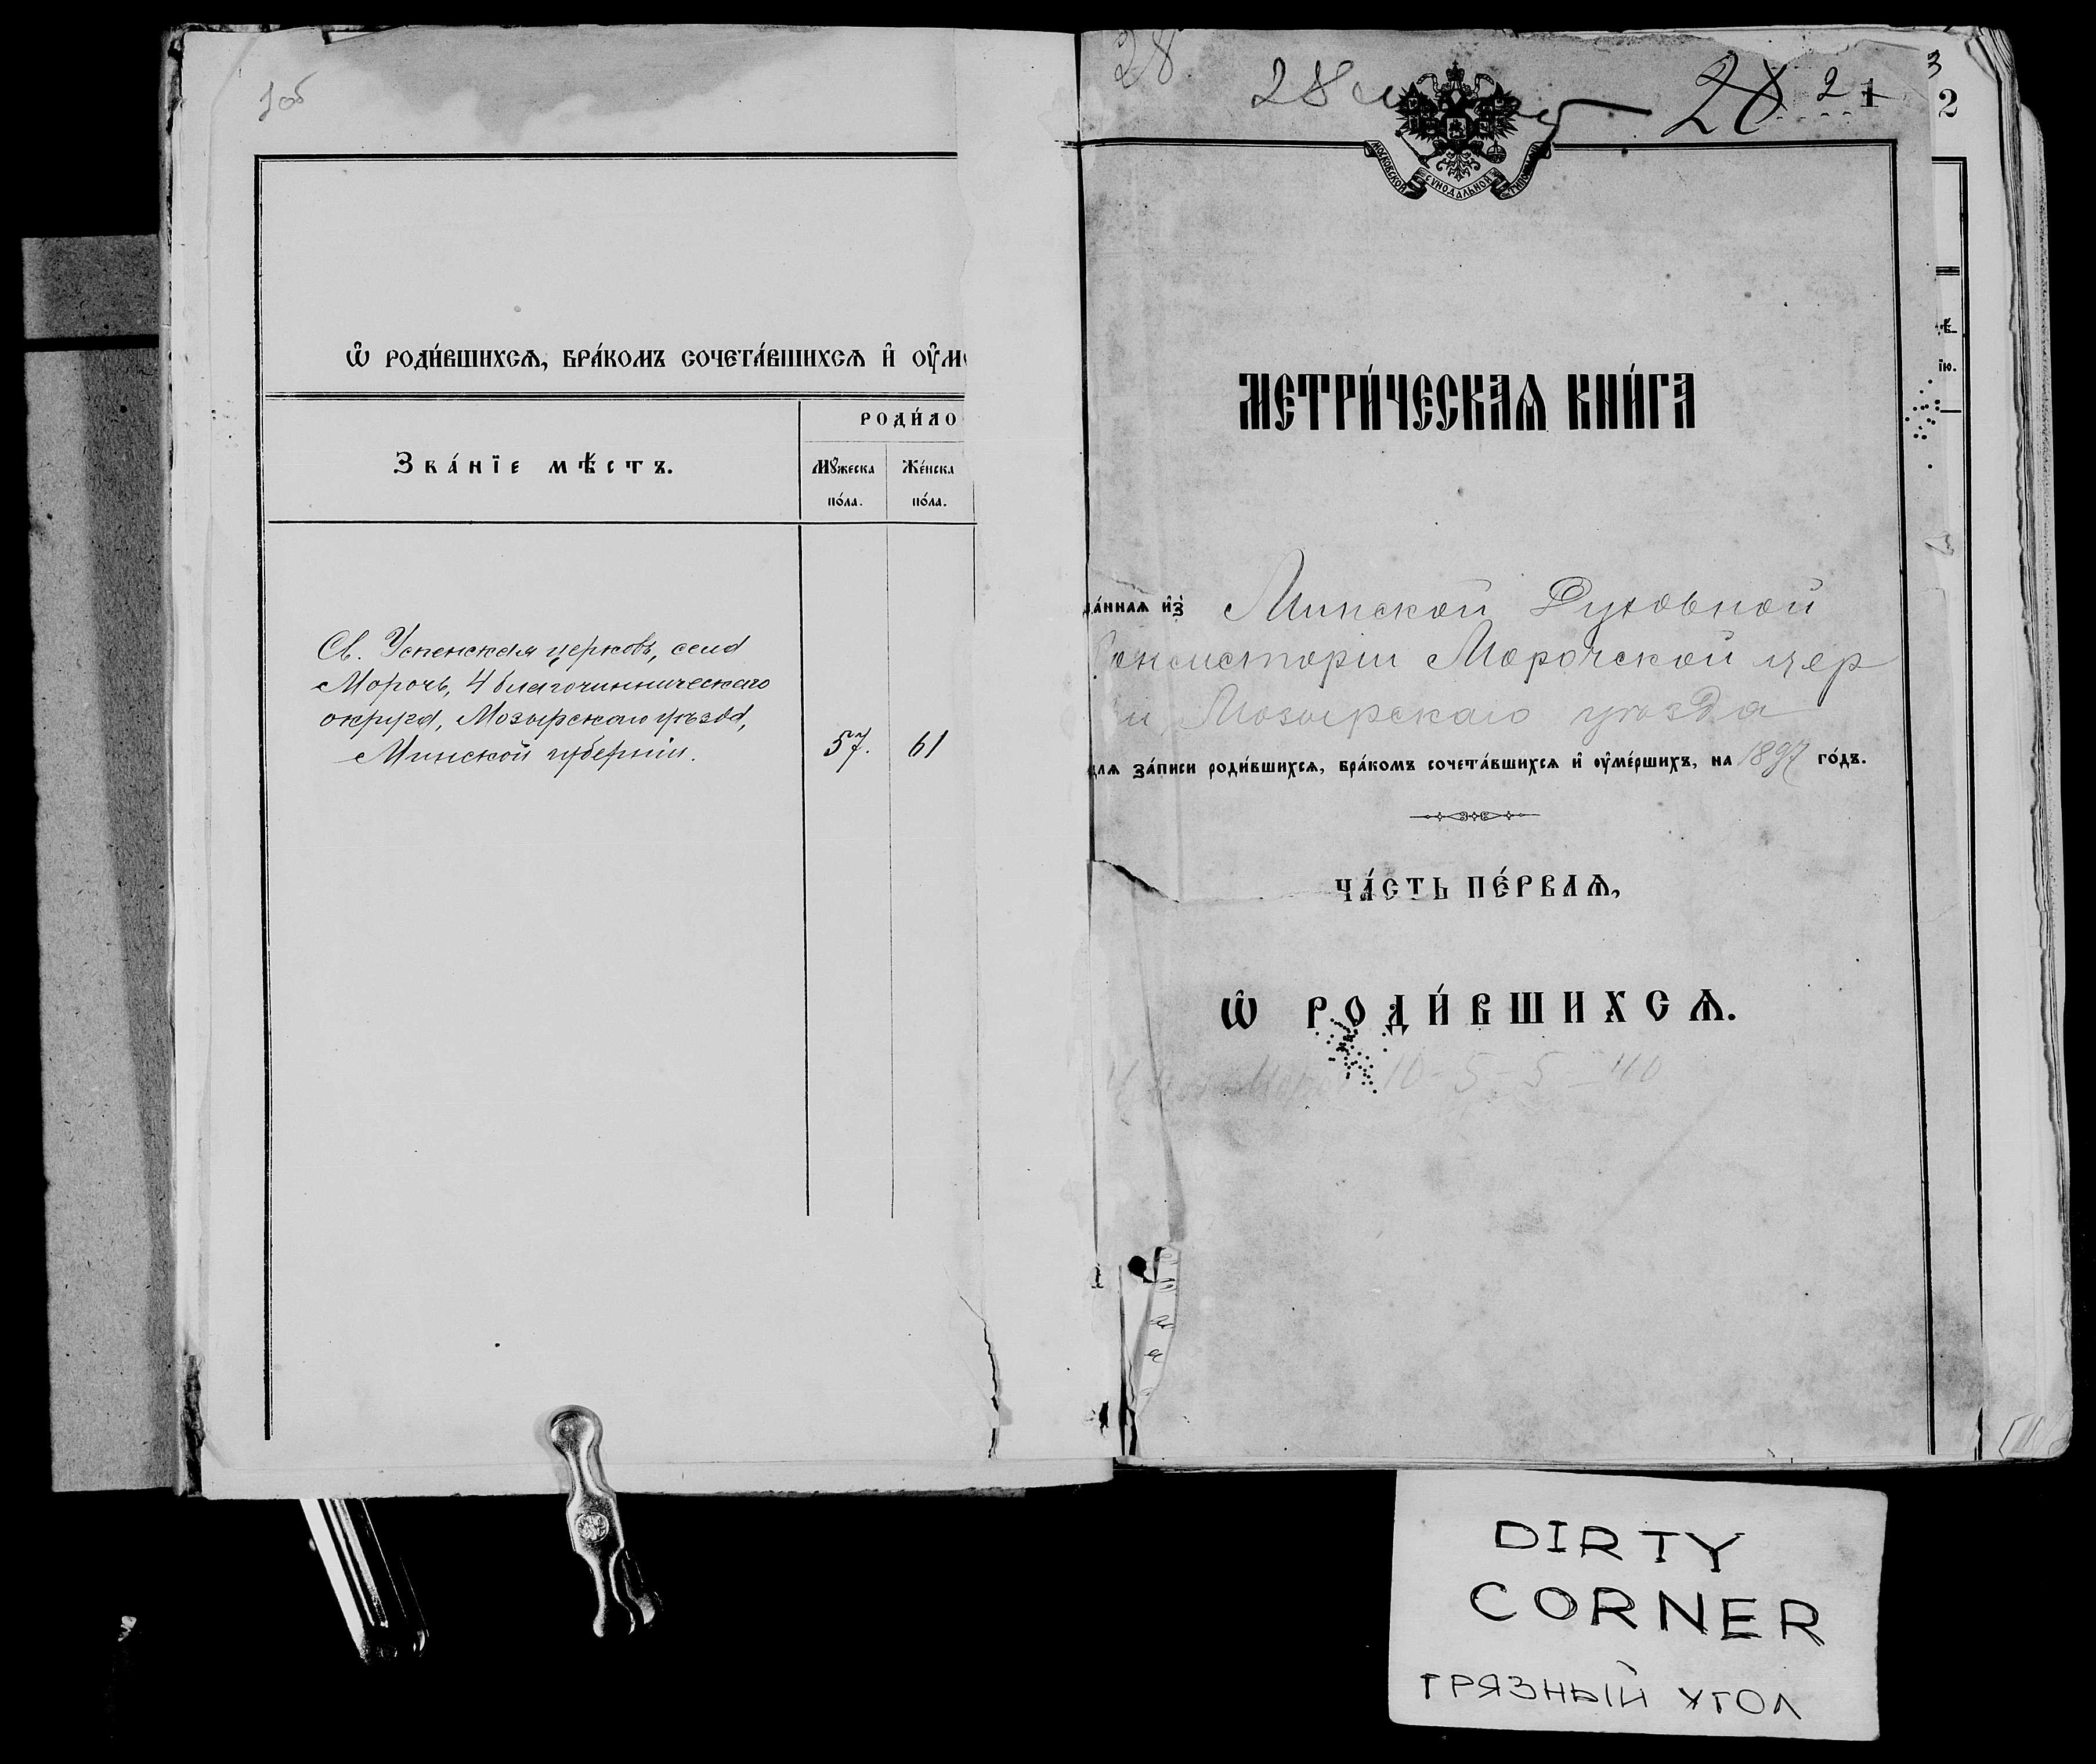 1об
Ѡ҆ РОДИ́ВШИХСѦ, БРА́КОМЪ СОЧЕТА́ВШИХСѦ И҆ ОУ҆М
РОДИ́ЛО
Зва́нїе мѣ́стъ.
Мꙋ́жеска
по́ла.
Же́нска
по́ла.
Св. Успенская церковь, села
Морочь, 4 благочинническаго
округа, Мозырскаго уѣзда,
Минской губерніи.
57.
61
28
28
28
2
1
МОСКОВСКОЙ СѴНОДАЛЬНОЙ ТИПОГРАФІИ
МЕТРИ́ЧЕСКАѦ КНИ́ГА
да́ннаѧ и҆з̾ Минской Духовной
Консисторіи Морочской цер
ви, Мозырскаго уѣзда
для за́писи роди́вшихсѧ, бра́комъ сочета́вшихсѧ и҆ оу҆ме́ршихъ, на 1897 го́дъ.
ЧА́СТЬ ПЕ́РВАѦ,
Ѡ҆ РОДИ́ВШИХСѦ.
10-5-5-40
3
2
їю.
DIRTY
CORNER
ГРЯЗНЫЙ УГОЛ